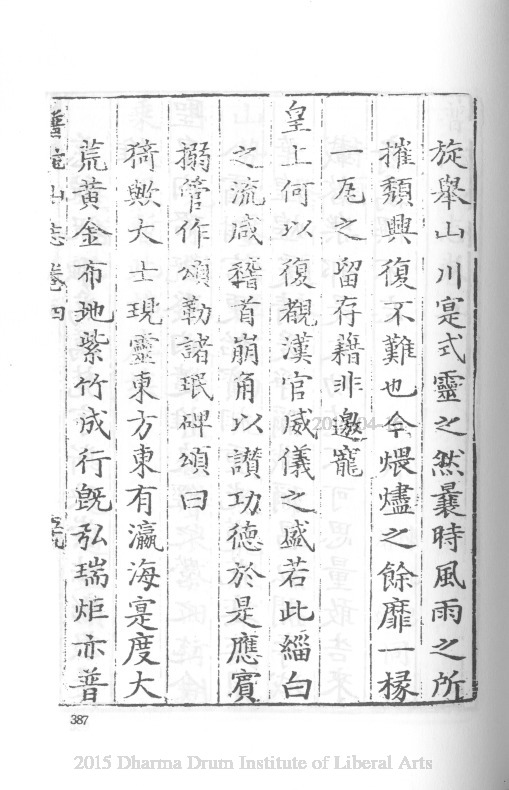 旋舉山川寔式靈之然曩時風雨之所
摧頹興復不難也今煨燼之餘靡一椽
一瓦之留存藉非邀寵
皇上何以復覩漢官威儀之盛若此緇白
之流咸稽首崩角以讃功德於是應賓
搦管作頌勒諸珉碑頌曰
猗歟大士現靈東方東有瀛海寔度大
荒黃金布地紫竹成行旣弘瑞炬亦普
普陀山志卷四
387
2015 Dharma Drum Institute of Liberal Arts